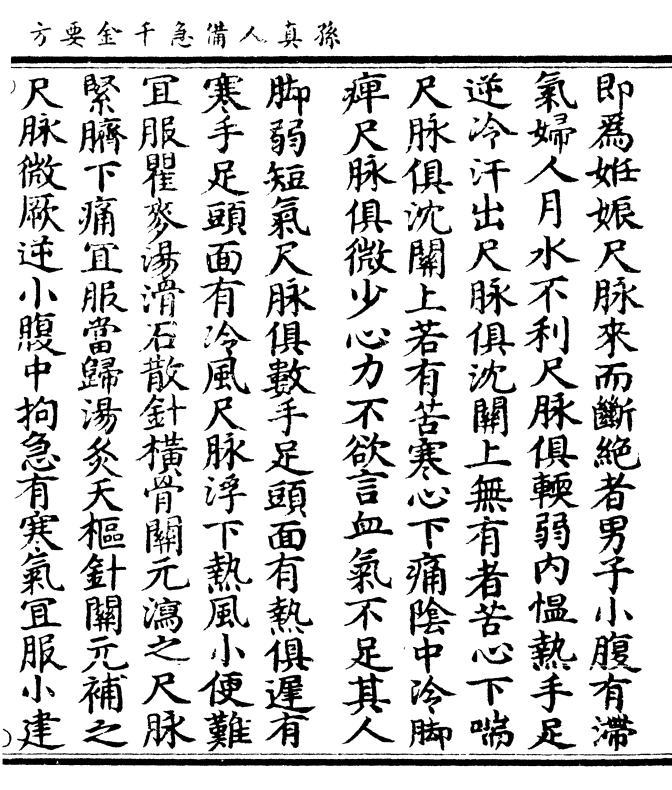 孫真人備急千金要方
即爲姙娠尺脉來而斷絕者男子小腹有滯
氣婦人月水不利尺脉俱輭弱内愠熱手足
逆冷汗出尺脉俱沈關上無有者苦心下喘
尺脉俱沈關上若有苦寒心下痛陰中冷脚
痺尺脉俱微少心力不欲言血氣不足其人
脚弱短氣尺脉俱數手足頭面有熱俱遲有
寒手足頭面有冷風尺脉浮下熱風小便難
冝服瞿麥湯滑石散針橫骨關元瀉之尺脉
緊臍下痛冝服當歸湯灸天樞針關元補之
尺脉微厥逆小腹中拘急有寒氣冝服小建